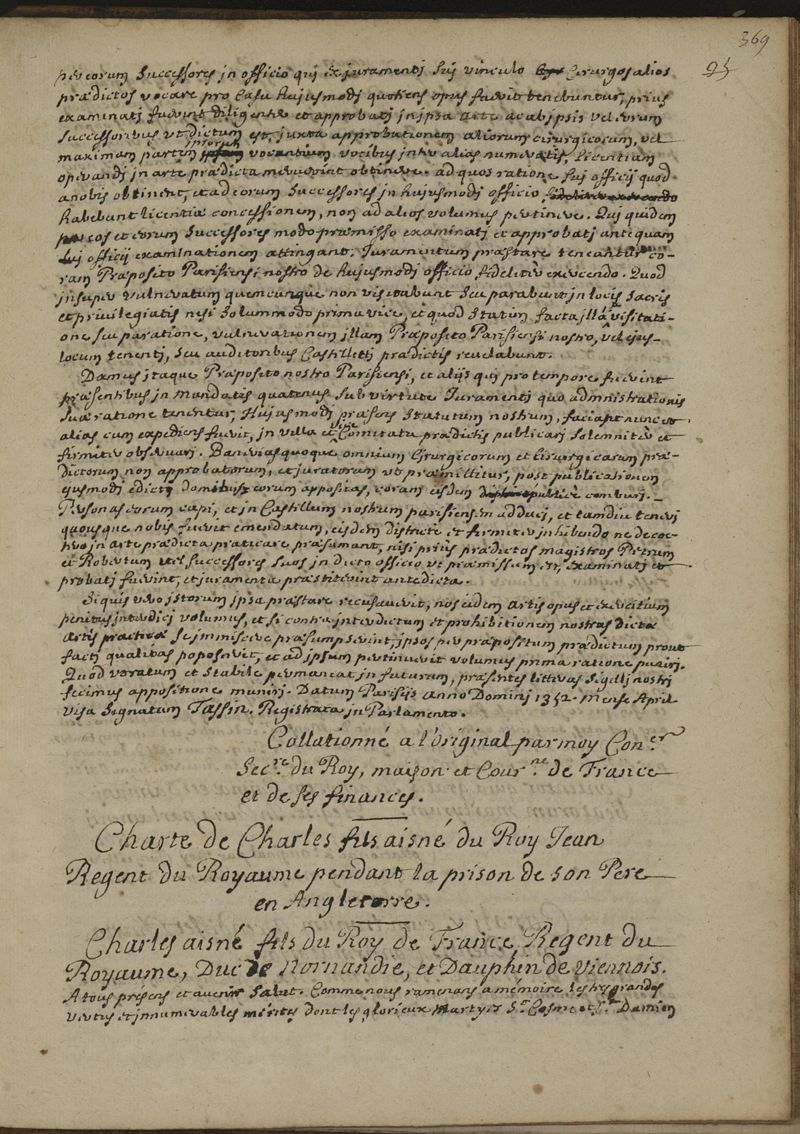 369
95
eorum Successores jn officio quj ex juramentj Suj vinculo Cirurgos alios
prædictos vocare pro Casu hujusmodj quotiens opus fuerit tenebuntur, prius
examinatj fuerint diligenter et approbatj jn jpsa arte ac ab jpsis vel eorum
Successoribus vt dictum est, juxta approbationem aliorum cirurgicorum, vel
maximam partem jpsorum vocantium vocibus jnter alias numeratis, Licentiam
operandj jn arte prædicta meruerint obtinere. ad quos ratione Suj officij quod
a nobis obtinent, et ad eorum Successores jn hujusmodj officio
habebunt licentiæ concessionem, non ad alios volumus pertinere. Quj quidem
per eos et eorum Successores modo præmisso examinatj et approbatj antequam
Suj officij examinationem attingant, Juramentum præstare teneantur co-
ram Præposito Parisiensi nostro de hujusmodj officio fideliter exercendo. Quod
jnsuper vulneratum quemcunque non visitabunt Seu parabunt jn locis Sacris
et privilegiatis nisi Solummodo prima vice, et quod Statim facta jlla visitati-
one seu paratione, vulnerationem jllam Præposito Parisiensi nostro, vel ejus-
locum tenentj, Seu auditoribus Castilletj prædictis reuelabunt.
Damus jtaque Præposito nostro Parisiensi, et alijs quj pro tempore fuerint
præsentibus jn mandatis quatenus Sub virtute Juramentj quo admnistrationis
Suæ ratione tenentur, Hujusmodj præsens Statutum nostrum, faciant nunc et
alias cum expediens fuerit, jn villa et Comitatu prædictis publicarj Solemniter et
firmiter obseruarj. Banerias quoque omnium Cirurgicorum et Cirurgicarum præ-
dictorum non approbatorum, et juratorum vt præmittitur, post publicationem
ejusmodj edictj domibus eorum appositas, coram eisdem publice comburj.
Personas eorum capi, et jn Castillum nostrum parisiensem adducj, et tamdiu tenerj
quousque nobis fuerit emendatum, eisdem districte et firmiter jnhibendo ne de cœ-
tero jn arte prædicta praticare præsumant, nisi prius prædictos magistros Petrum
et Robertum vel successores suos jn dicto officio vt præmissum est, examinatj et
probatj fuerint, et juramenta præstiterint antedicta.
Si quis vero jstorum jpsa præstare recusauerit, nos eidem artis opus et exercitium
penitus jnterdicj volumus, et si contra jnterdictum et prohibitionem nostras dictæ
artis practicæ Se jmmiscere præsumpserint, jpsos per præpositum prædictum prout
factj qualitas poposcerit, et ad jpsum pertinuerit volumus prima ratione punirj.
Quod vt ratum et Stabile permaneat jn futurum, præsentes litteras Sigillj nostrj
fecimus appositione munirj. Datum Parisijs anno Dominj 1352. mense April
visa Signatum Tassin. Registrata jn Parlamento.
Collationné a l'original par moy Con.er
Sec.re du Roy, maison et Cour.ne de France
et de ses finances.
Charte de Charles fils aisné du Roy Jean
Regent du Royaume pendant la prison de son Pere
en Angleterre.
Charles aisné fils du Roy de France Regent du
Royaume, Duc de Normandie, et Dauphin de Viennois.
A tous présens et auenir Salut. Comme nous ramenans a mémoire les tres grandes
vertus et jnnumerables mérites dont les glorieux Martyrs S.t Cosme et S.t Damien